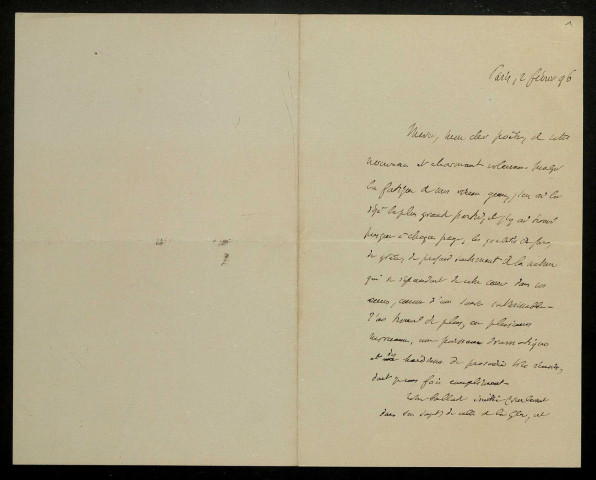 Paris, 2 février 96
Merci, mon cher poète, de votre
nouveau et charmant volume. Malgré
la fatigue de mes vieux yeux, j'en ai lu
déjà la plus grande partie, et j'y ai trouvé
presque à chaque page, les qualités de
de grâce, de profond sentiment de la nature
qui se répandent de votre cœur dans vos
vers, comme d'une source intarissable.
J'ai trouvé de plus, en plusieurs
morceaux, une puissance dramatique
et des hardiesses de prosodie très réussies,
dont je vous fais compliment.
Votre ballade
dans son de la et